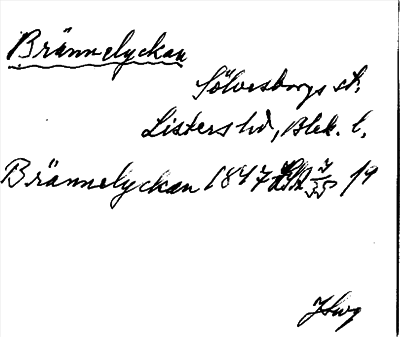 Brännelyckan
Sölvesborgs sk.
Listers hd, Blek. l.
Brännelyckan 1847 7/35 19